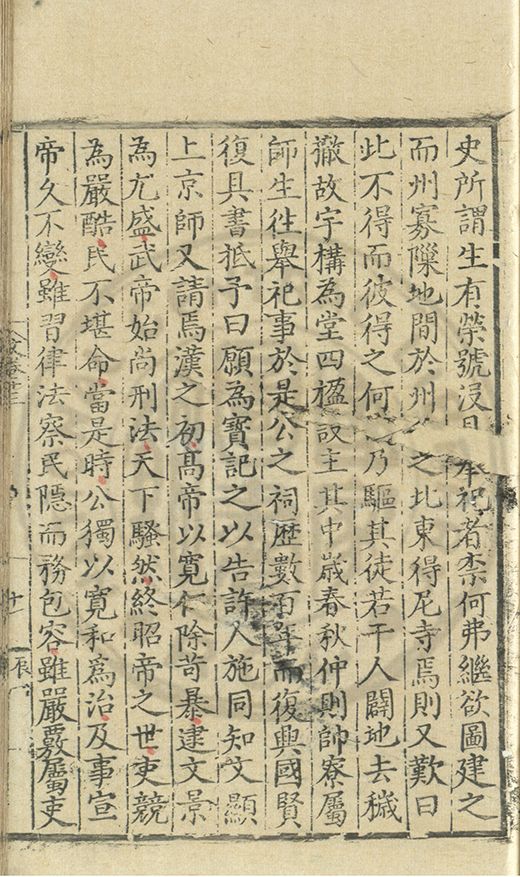 史所謂生有榮號没奉祀者柰何弗繼欲圖建之
而州寡隟地間於州之北東得尼寺焉則又歎曰
此不得而彼得之何乃驅其徒若干人闢地去穢
撤故宇構為堂四楹設主其中歲春秋仲則帥寮屬
師生徃舉祀事於是公之祠歷數百年而復興國賢
復具書抵予曰願為寳記之以告許人施同知文顯
上京師又請焉漢之初髙帝以寬仁除苛暴逮文景
為尤盛武帝始尚刑法天下騷然終昭帝之世吏競
為嚴酷民不堪命當是時公獨以寬和為治及事宣
帝久不變雖習律法察民隱而務包容雖嚴覈屬吏